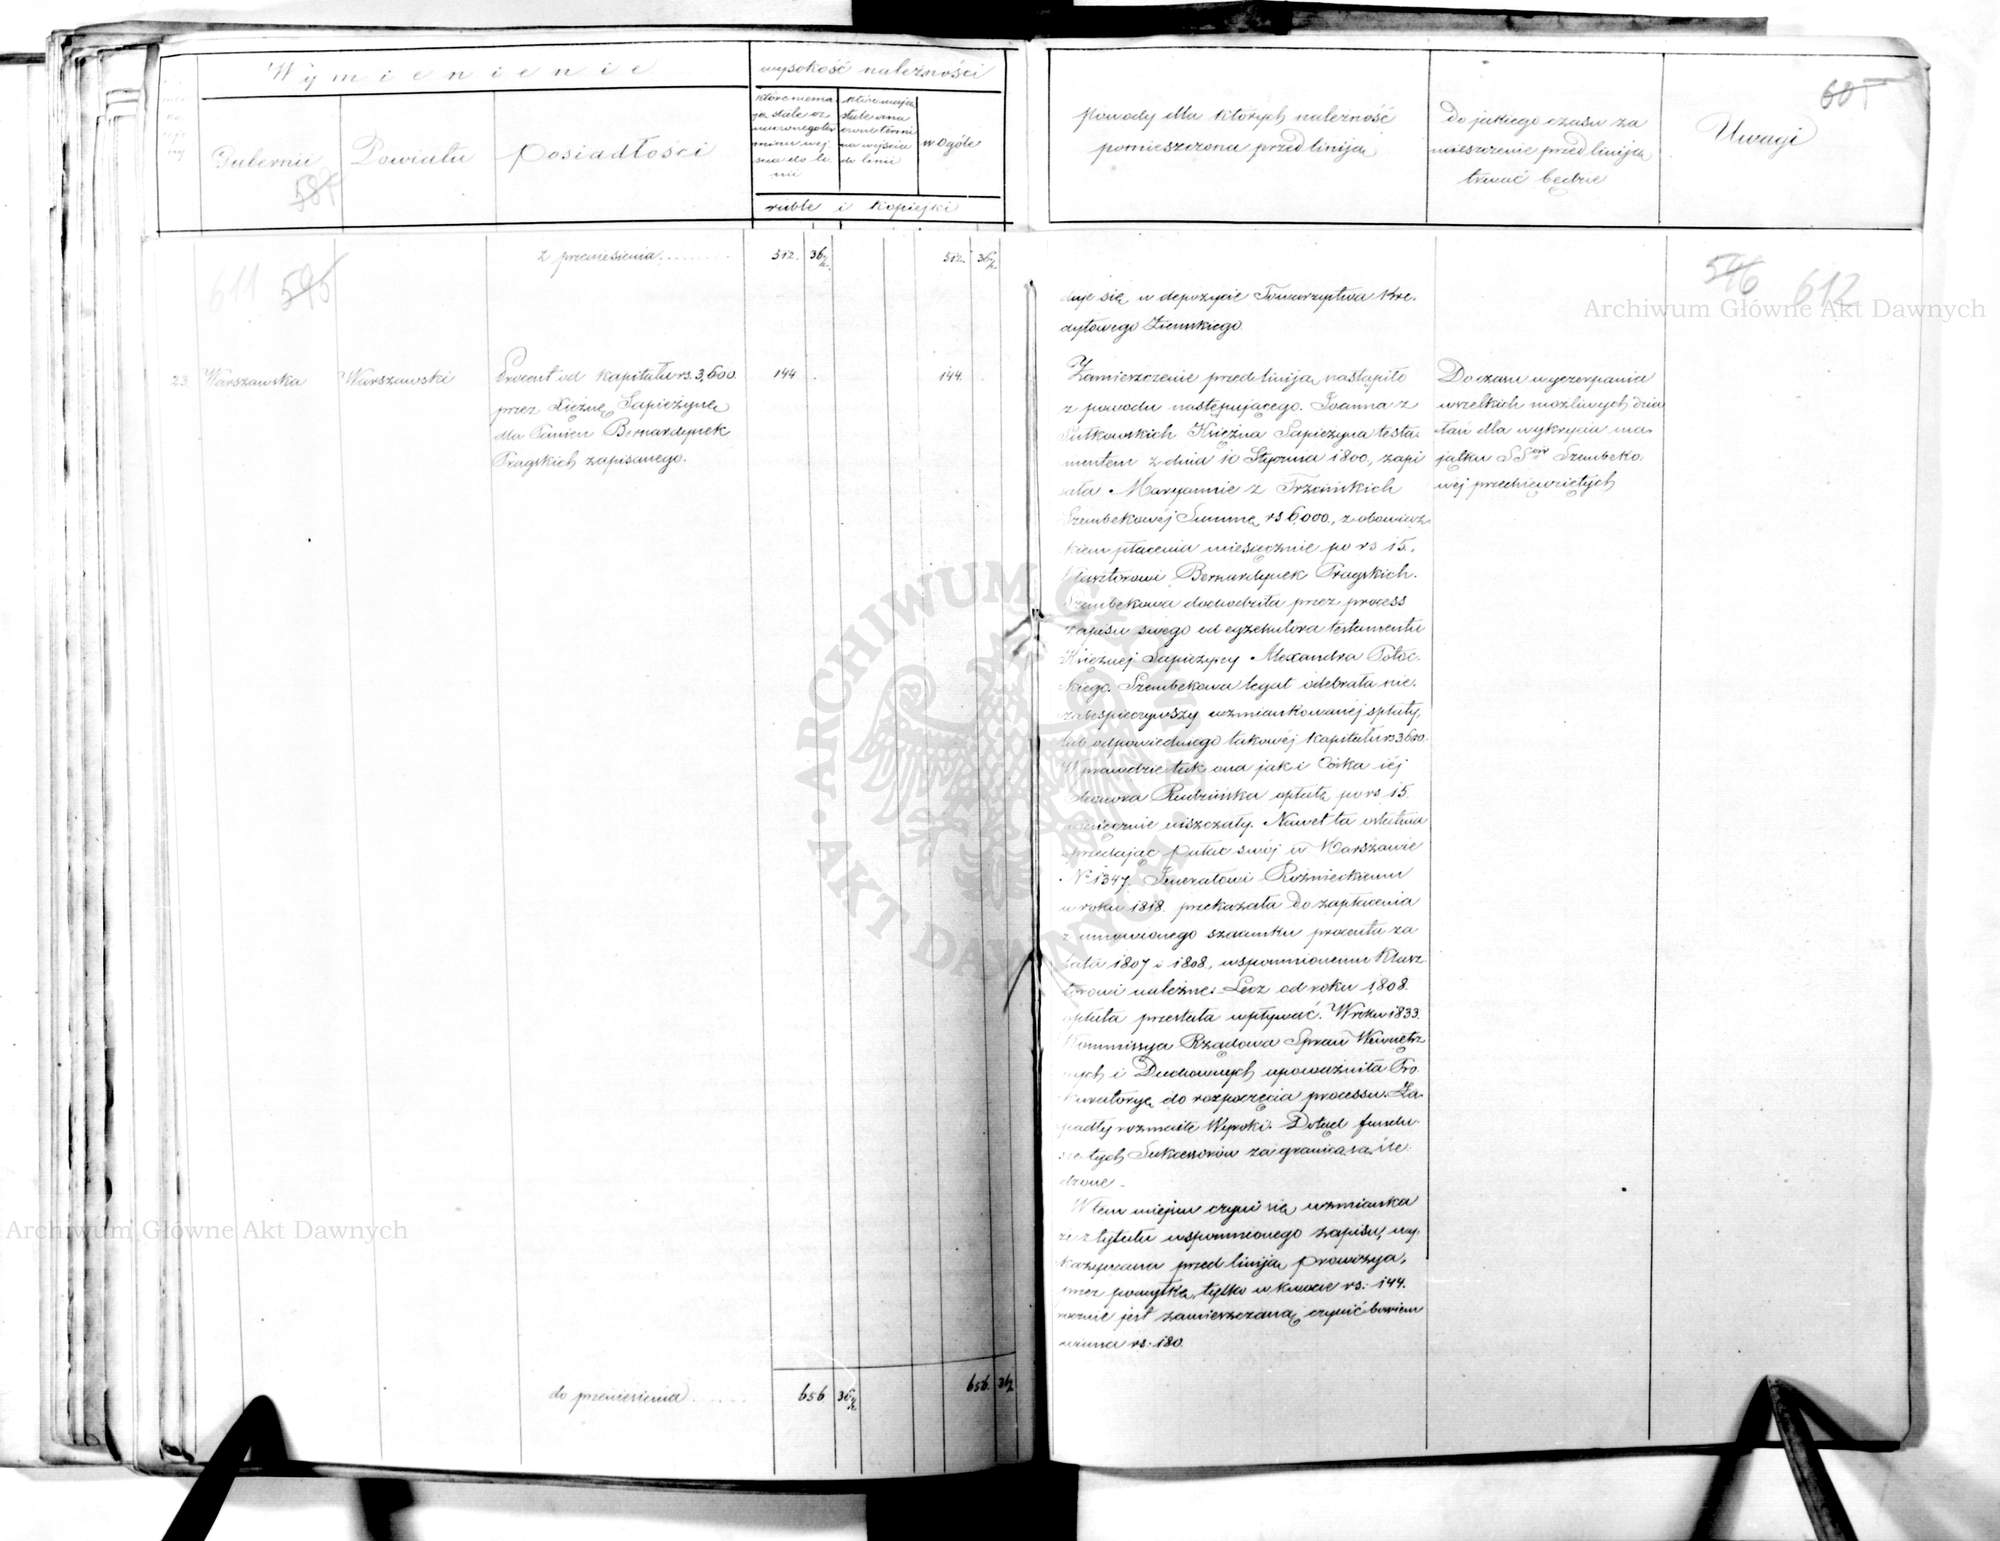 Wymienienie
wysokość należności
Gubernii
Powiatu
Posiadłości
które niema
ją stale oz
naczonego ter
minu wej
ścia do li
nii
które mają
stale ozna
czone termi
na wejścia
do linii
w ogóle
ruble i kopiejki
581
z przeniesienia
512. 36½
512. 36½
611 595
23 Warszawska
Warszawski
Procent od kapitału rs. 3,600.
przez Xiężnę Sapieżynę
dla Panien Bernardynek
Pragskich zapisanego.
144 .
144. .
do przeniesienia
656 36½
656. 36½
powody dla których należność
pomieszczona przed linją
Do jakiego czasu za
mieszczenie przed linją
trwać będzie
Uwagi
605
596 612
duje się w depozycie Towarzystwa Kre.
dytowego Ziemskiego.
Zamieszczenie przed liniją nastąpiło
z powodu następującego. Joanna z
Sułkowskich Księżna Sapieżyna testa.
mentem z dnia 10 Stycznia 1800, zapi
sała Maryannie z Trzcińskich
Szembekowéj Summę rs 6,000., z obowiąz
kiem płacenia miesięcznie po rs 15.
Klasztorowi Bernardynek Pragskich.
Szembekowa dochodziła przez process
zapisu swego od egzekutora testamentu
Księżnej Sapieżyny Alexandra Potoc.
kiego. Szembekowa legat odebrała nie.
zabespieczywszy wzmiankowanéj spłaty,
lub odpowiedniego takowéj kapitału rs 3600.
Wprawdzie tak ona jak i Córka iéj
Rudzińska opłatę po rs. 15.
miesięcznie uiszczały. Nawet ta ostatnia
sprzedając pałac swój w Warszawie
Nº 1347. Jenerałowi Rożnieckiemu
w roku 1818. przekazała do zapłacenia
z umowionego szacunku procenta za
lata 1807 i 1808, wspomnionemu Klasz
torowi należne. Lecz od roku 1808.
opłata przestała wpływać. W roku 1833.
Kommissya Rządowa Spraw Wewnętrz
nych i Duchownych upoważniła Pro.
kuratoryę do rozpoczęcia processu. Za.
padły rozmaite Wyroki. Dotąd fundu.
sze tych Sukcessorów za granicą są śle.
dzone.
W tem miejscu czyni się wzmianka
że z tytułu wspomnionego zapisu, wy.
kazywana przed liniją prowizya,
przez pomyłkę, tylko w kwocie rs. 144.
rocznie jest zamieszczana, czynić bowiem
winna rs. 180.
Do czasu wyczerpania
wszelkich możliwych dzia
łań dla wykrycia ma.
jątku SSów Szembeko.
wéj przedsięwziętych
Archiwum Główne Akt Dawnych
Archiwum Główne Akt Dawnych
ARCHIWUM GŁÓWNE
AKT DAWNYCH